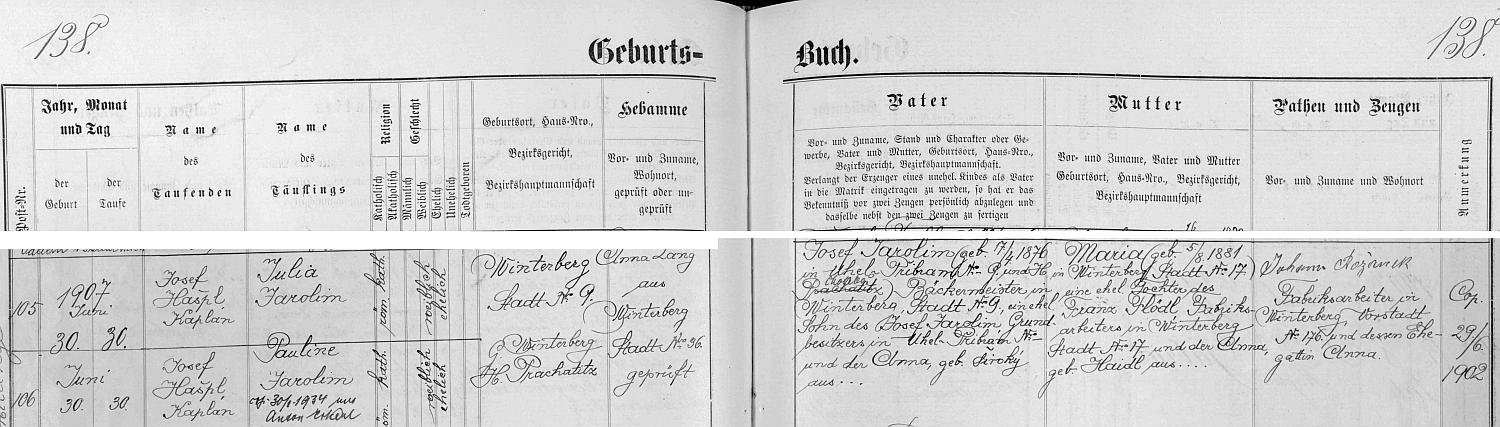 138.
Geburts-
Jahr, Monat
und Tag
der
Geburt
der
Taufe
Post-Nr.
Name
des
Taufenden
Name
des
Täuflings
Religion
Katholisch
Akatholisch
Geschlecht
Männlich
Weiblich
Ehelich
Unehelich
Todtgeboren
Geburtsort, Haus-Nro.,
Bezirksgericht,
Bezirkshauptmannschaft
Hebamme
Vor- und Zuname,
Wohnort,
geprüft oder un-
geprüft
105
1907.
Juni
30. 30.
Josef
Hašpl
Kaplan
Julia
Jarolim
röm. kath.
weiblich
ehelich
Winterberg
Stadt No 9.
Anna Lang
aus
Winterberg
Stadt No 36.
geprüft
106
Juni
30. 30.
Josef
Hašpl,
Kaplán
Pauline
Jarolim
1934
Anton
röm. kath.
weiblich
ehelich
G. Winterberg
H. Prachatitz
Buch.
138.
Vater
Vor- und Zuname, Stand und Charakter oder Ge-
werbe, Vater und Mutter, Geburtsort, Haus-Nro.,
Bezirksgericht, Bezirkshauptmannschaft.
Verlangt der Erzeuger eines unehel. Kindes als Vater
in die Matrik eingetragen zu werden, so hat er das
Bekenntniß vor zwei Zeugen persönlich abzulegen und
dasselbe nebst den zwei Zeugen zu fertigen
Mutter
Vor- und Zuname, Vater und Mutter
Geburtsort, Haus-Nro., Bezirksgericht,
Bezirkshauptmannschaft
Pathen und Zeugen
Vor- und Zuname und Wohnort
Anmerkung
Josef Jarolim (geb. 17/4 1876
in Uhel. Tribam No 9. und H.
Prachatitz) Bäckermeister in
Winterberg, Stadt No 9, ein ehel.
Sohn des Josef Jarolim, Grund-
besitzers in Uhel. Tribam No
und der Anna, geb. Široký
aus....
Maria (geb. 5/8 1881
in Winterberg Stadt No 17)
eine ehel. Tochter des
Franz Flödl, Fabriks-
arbeiters in Winterberg
Stadt No 17 und der Anna,
geb. Haidl aus....
Johann
Fabriksarbeiter in
Winterberg, Vorstadt
No 176. und dessen Ehe-
gattin Anna.
Cop.
29/6.
1902